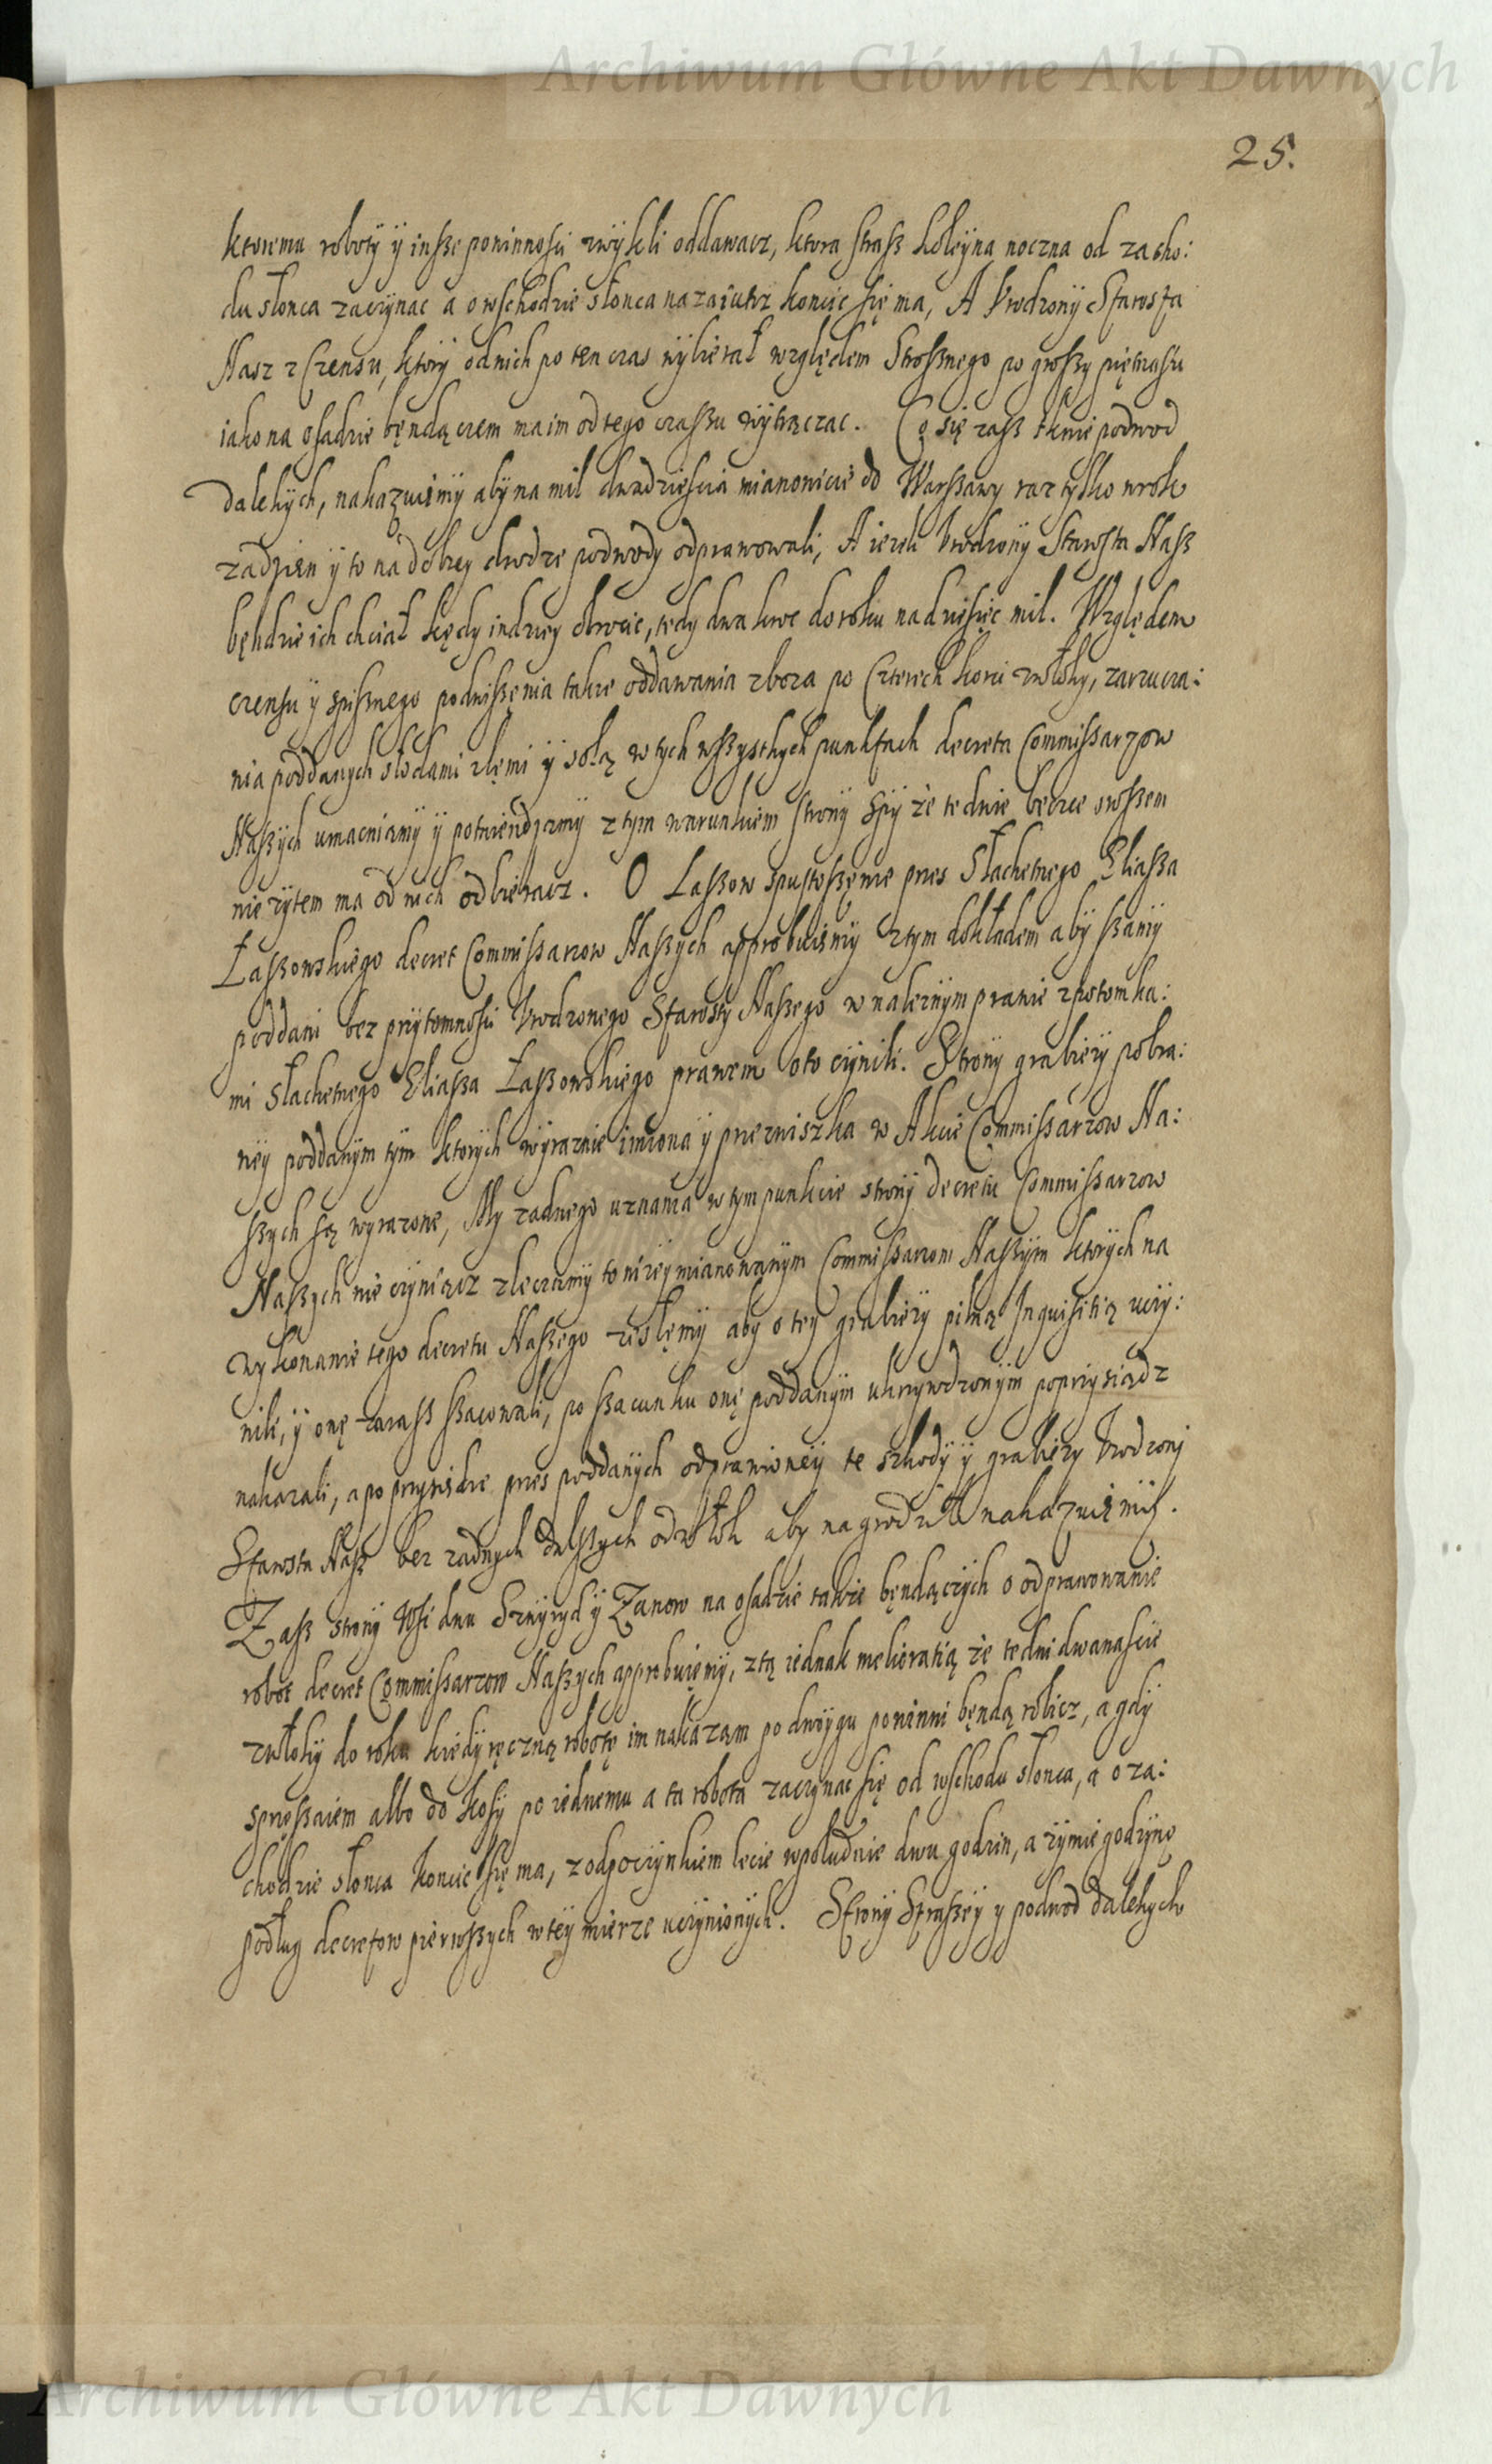 Archiwum Główne Akt Dawnych
25.
ktoremu roboty ÿ insze powinnosci zwÿkli oddawacz, ktora strasz koleÿna noczna od zacho:
du słonca zaczynac a o wschodzie słonca nazaiutrz koncic się ma, A Urodzonÿ Starosta
Nasz z Czensu, ktorÿ od nich po ten czas wÿbierał względem Strosznego po groszy piętnasciu
iako na osadzie będącem ma im od tego czaszu wÿtrączac. Co się zasz tknie podwod
dalekÿch, nakazuiemÿ abÿ na mil dwadziescia mianowicie do Warszawy raz tylko w rok
za dzien ÿ to na dobrey drodze podwody odprawowali, A iezeli Urodzony Starosta Nasz
będzie ich chciał kędy indziey obrocic, tedy dwa kroc do roku na dziesięc mil. Względem
czensu ÿ spisznego podniszenia takze oddawania zboza po Czterech korci z włoky, zarzuca:
nia poddanych słodami złemi ÿ solą w tych wszystkych punktach decreta Commissarzow
Naszÿch umacniamy ÿ potwierdzamy z tym warunkiem stronÿ Spÿ że tednie beczce owszem
nie zytem ma od nich odbieracz. O Laszow spustoszęnie przes Slachetnego Eliasza
Łaszowskiego decret Commissarzow Naszych approbuiemÿ z tym dokładem abÿ szamÿ
poddani bez przÿtomnosci Urodzonego Starosty Naszego w naleznÿm prawie z potomka:
mi Slachetnego Eliasza Łaszowskiego prawem o to czÿnili. Stronÿ grabiezÿ pobra:
neÿ poddanÿm tÿm ktorych wÿraznie imiona ÿ przezwiszka w Akcie Commissarzow Na:
szych są wyrazone, My zadnego uznania w tym punkcie stronÿ decretu Commissarzow
Naszych nie czÿniącz zlecamÿ to nizeÿ mianowanÿm Commissarzom Naszÿm ktorÿch na
wykonanie tego decretu Naszego zeslemÿ aby o teÿ grabiezÿ pilną Inquisitią uczÿ:
nili, ÿ onę zarasz szacowali, po szacunku onę poddanÿm ukrzywdzonÿm poprzÿsiądz
nakazali, a po przysiedze przes poddanÿch odprawioneÿ te szkodÿ ÿ grabiezy Urodzonÿ
Starosta Nasz bez zadnych dalszÿch odwłok aby nagrodził nakazuięmÿ.
Zasz stronÿ Wsi dwu Szmyryd ÿ Żanow na osadzie takze będączÿch o odprawowanie
robot decret Commissarzow Naszÿch approbuięmÿ, z tą iednak melioratią że te dni dwanascie
z włoky do roku kiedÿ ręczną robotę im nakazam po dwoÿgu powinni będą robicz, a gdÿ
sprzęszaiem albo do kosÿ po iednemu a ta robota zaczynac się od wschodu słonca, a o za:
chodzie słonca koncic się ma, z odpoczÿnkiem lecie w południe dwu godzin, a zÿmie godzÿnę
podług decretow pierwszych w teÿ mierze uczÿnionÿch. Stronÿ Strazeÿ y podwod dalekych
Archiwum Główne Akt Dawnych